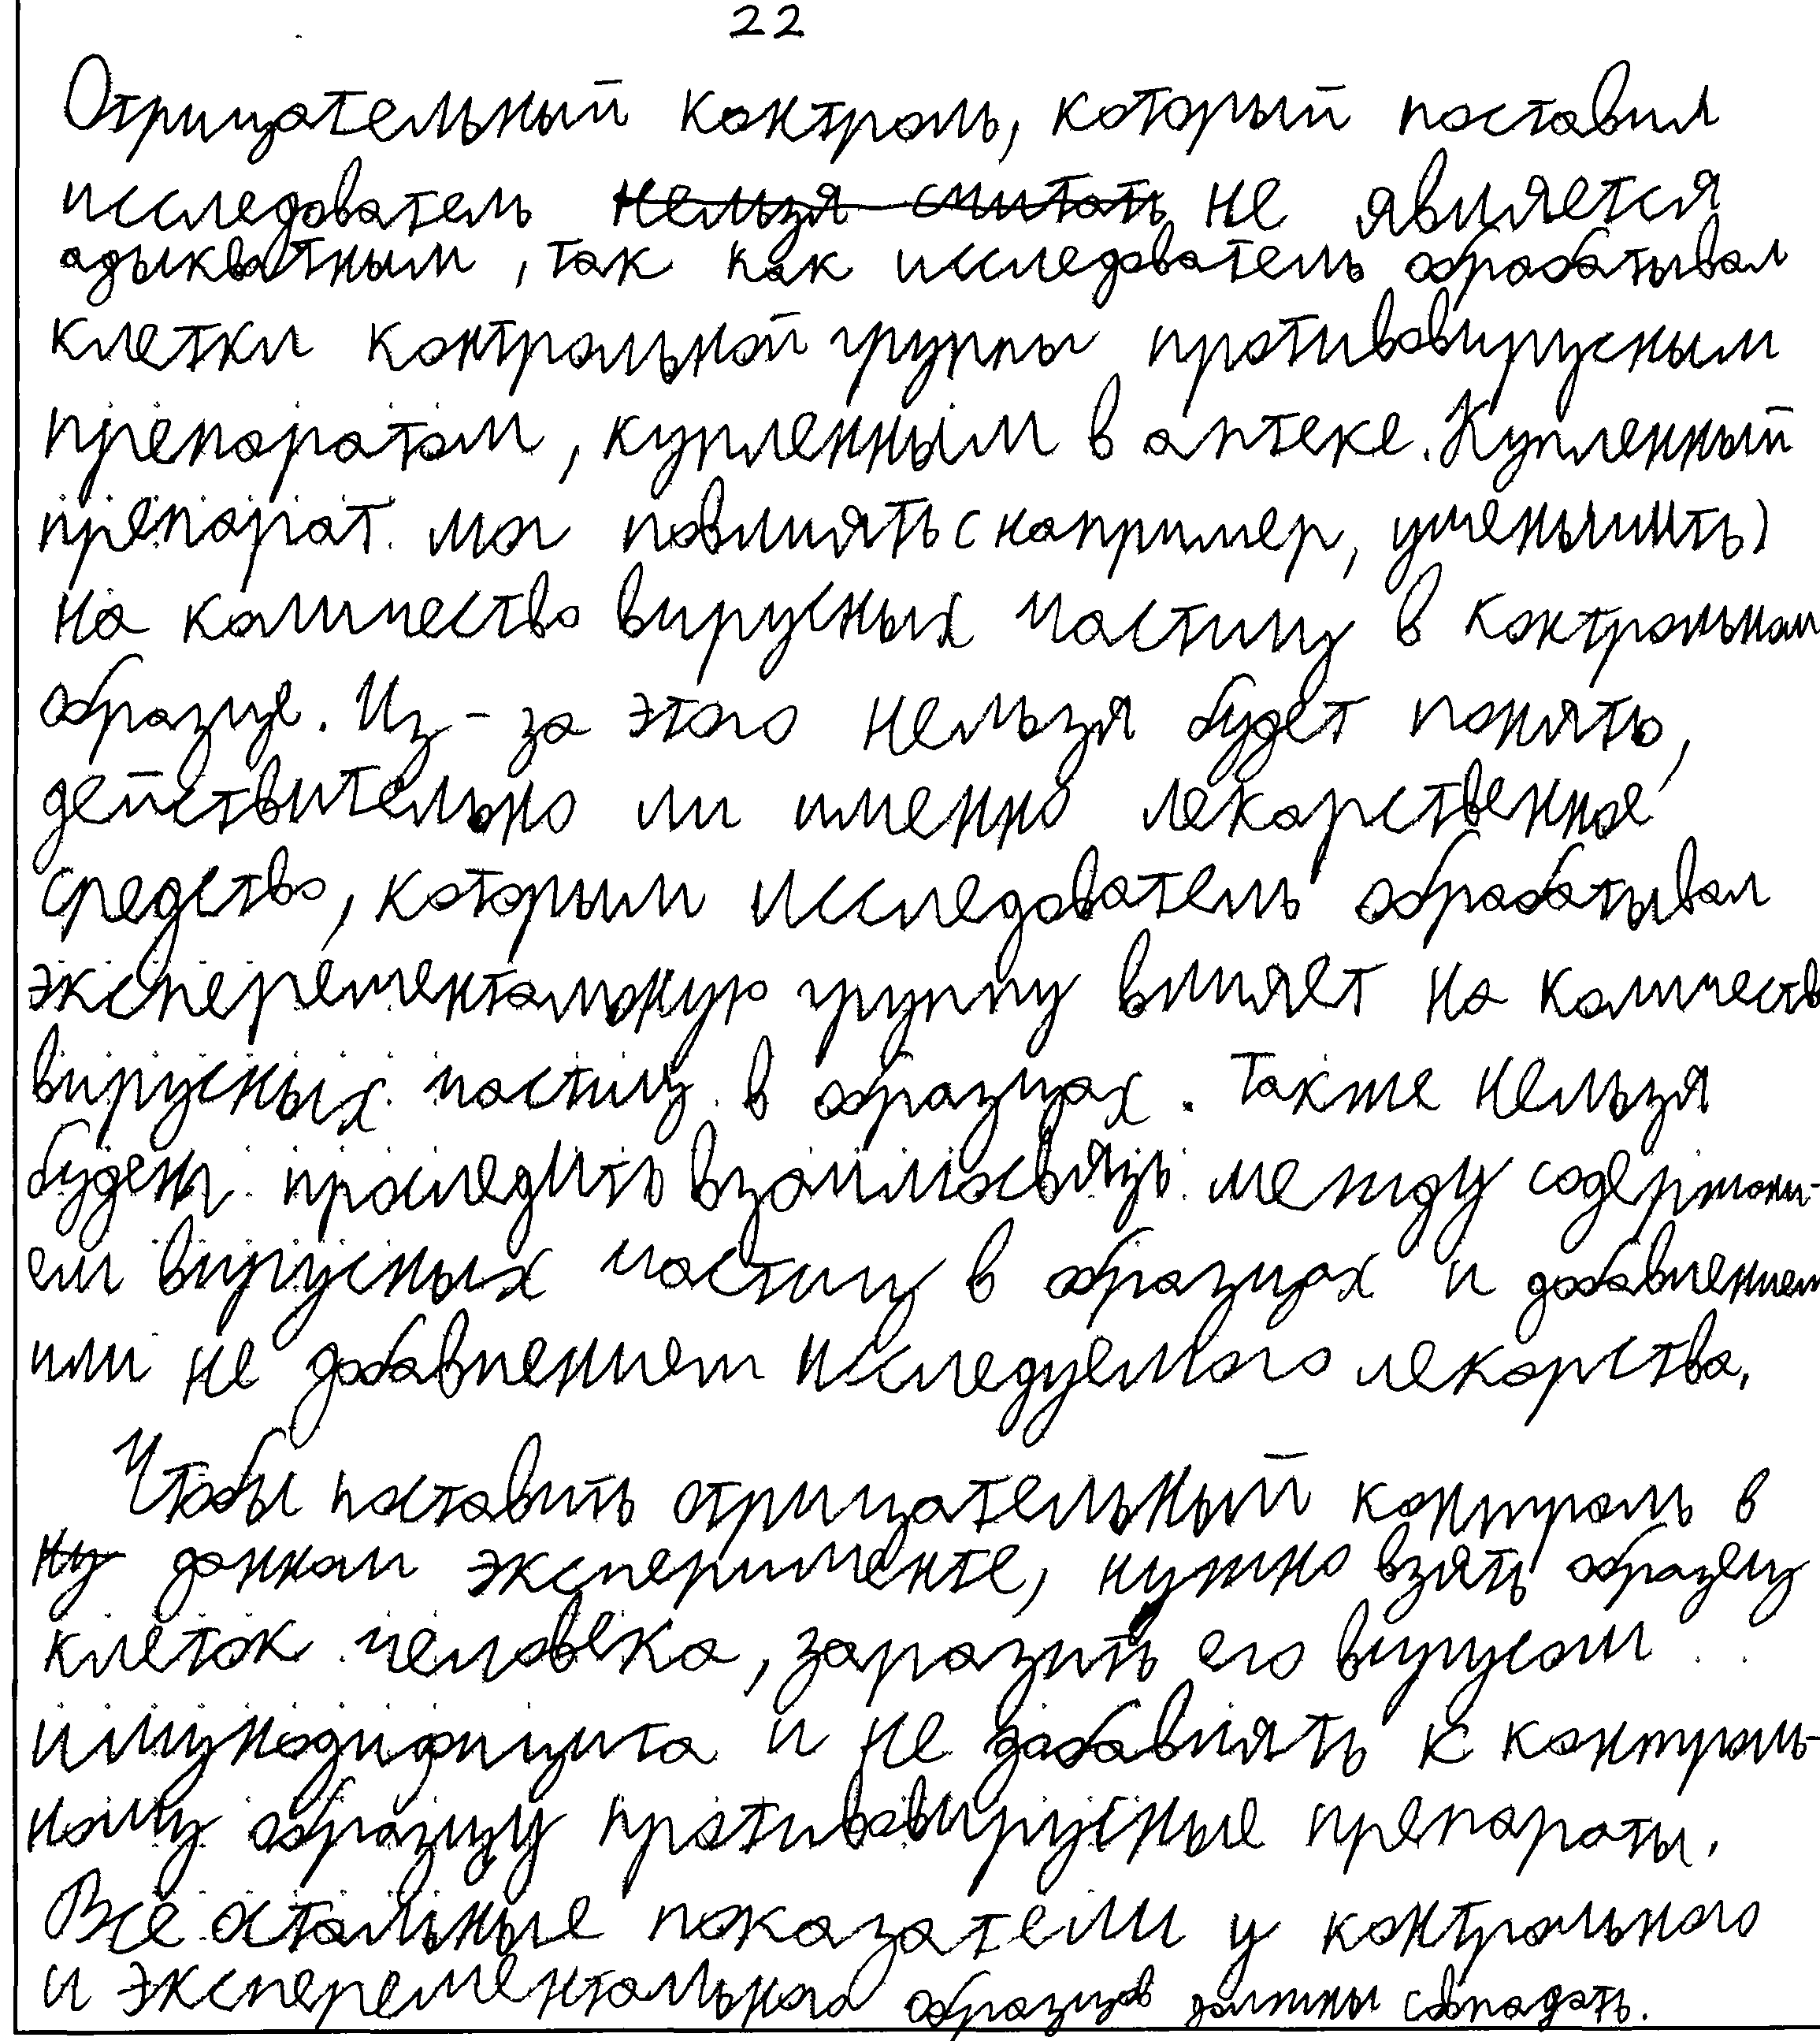 22
Отрицательный контроль, который поставил
исследователь нельзя считать не является
адыкватным, так как исследователь обрабатывал
клетки контрольной группы противовирусным
препаратом, купленным в аптеке. Купленный
препарат мог повлиять (например, уменьшить)
на количество вирусных частиц в контрольном
образце. Из-за этого нельзя будет понять,
действительно ли именно лекарственное
средство, которым исследователь обрабатывал
эксперементальную группу влияет на количеств
вирусных частиц в образцах. Также нельзя
будет проследить взаимосвязь между содержани-
ем вирусных частиц в образцах и добавлением
или не добавлением исследуемого лекарства.
Чтобы поставить отрицательный контроль в
ну данном эксперименте, нужно взять образец
клеток человека, заразить его вирусом
имунодифицита и не добавлять к контроль-
ному образцу противовирусные препараты.
Все остальные показатели у контрольного
и эксперементального образцов должны совпадать.